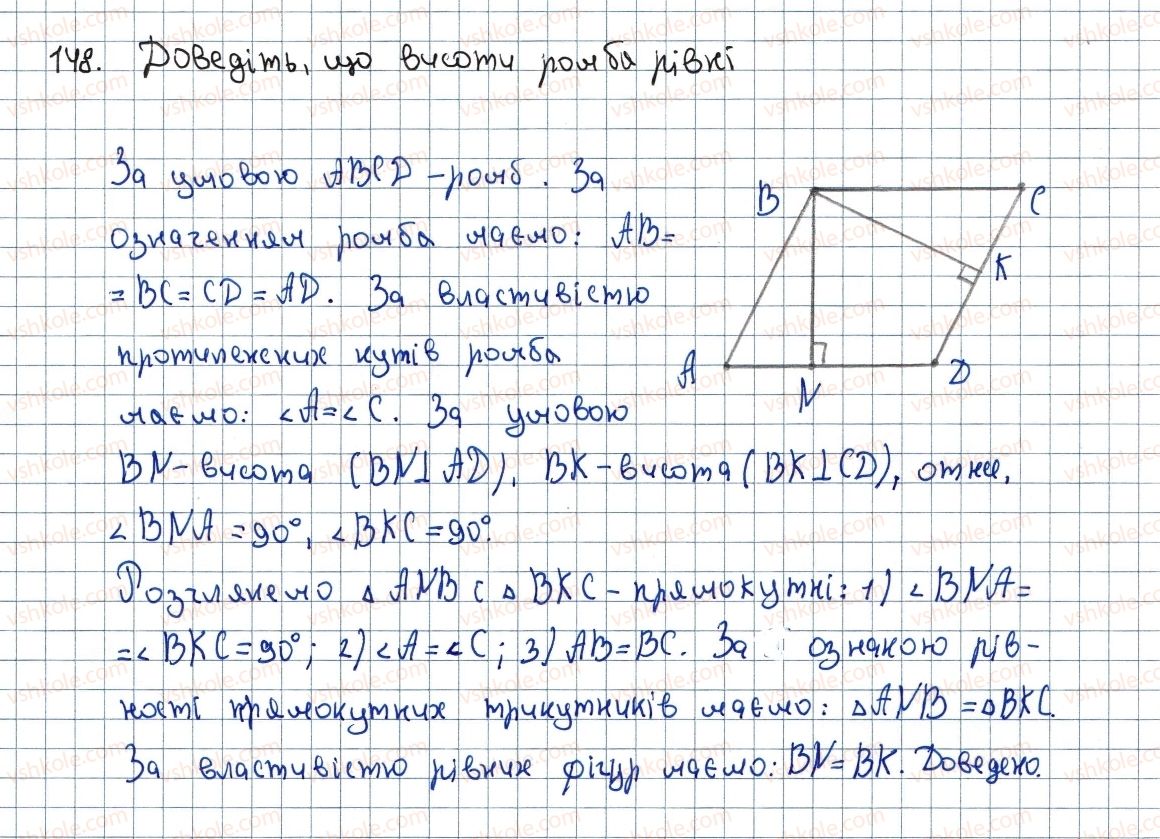 148. Доведіть, що висоти ромба рівні
За умовою ABCD - ромб. За
означенням ромба маємо: AB=
= BC = CD = AD. За властивістю
протилежних кутів ромба
маємо: ∠A=∠C. За умовою
BN - висота (BN⊥AD), BK - висота (BK⊥CD), отже,
∠BNA = 90°, ∠BKC = 90°.
Розглянемо △ANB і △BKC - прямокутні: 1) ∠BNA=
=∠BKC=90°; 2) ∠A=∠C; 3) AB=BC. За ознакою рів-
ності прямокутних трикутників маємо: △ANB =△BKC.
За властивістю рівних фігур маємо: BN=BK. Доведено.
B
C
K
A
N
D
vshkole.com